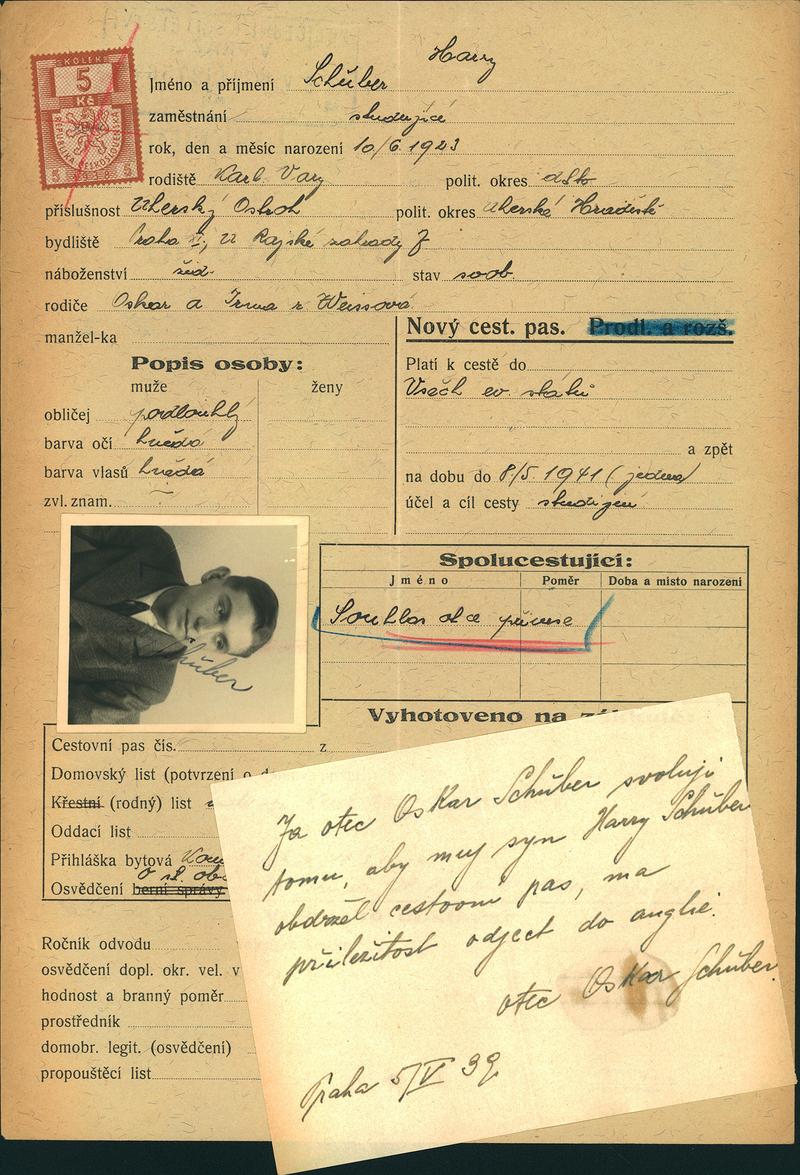 KOLEK
5
Kč
REPUBLIKA ČESKOSLOVENSKÁ
5 1938 5
Harry
Jméno a příjmení Schüber
zaměstnání studující
rok, den a měsíc narození 10/6. 1923
rodiště Karl. Vary polit. okres dtto
příslušnost Uherský Ostroh polit. okres Uherské Hradiště
bydliště Praha II, U Rajské zahrady 7
náboženství žid. stav svob.
rodiče Oskar a Irma r. Weissová
manžel-ka
Nový cest. pas. Prodl. a rozš.
Popis osoby:
muže ženy
obličej podlouhlý
barva očí hnědá
barva vlasů hnědá
zvl. znam. —
Platí k cestě do
Všech ev. států
a zpět
na dobu do 8/5. 1941 (jedna)
účel a cíl cesty studijní
Schüber
Spolucestující:
Jméno Poměr Doba a místo narození
Souhlas otce přinese
Vyhotoveno na
Cestovní pas čís. z
Domovský list (potvrzení o
Křestní (rodný) list
Oddací list
Přihláška bytová
Osvědčení berní správy
Ročník odvodu
osvědčení dopl. okr. vel. v
hodnost a branný poměr
prostředník
domobr. legit. (osvědčení)
propouštěcí list
Ja otec Oskar Schüber svoluji
tomu, aby muj syn Harry Schüber
obdržel cestovni pas, ma
přiležitost odject do anglie.
otec Oskar Schüber.
Praha 5/V 39.